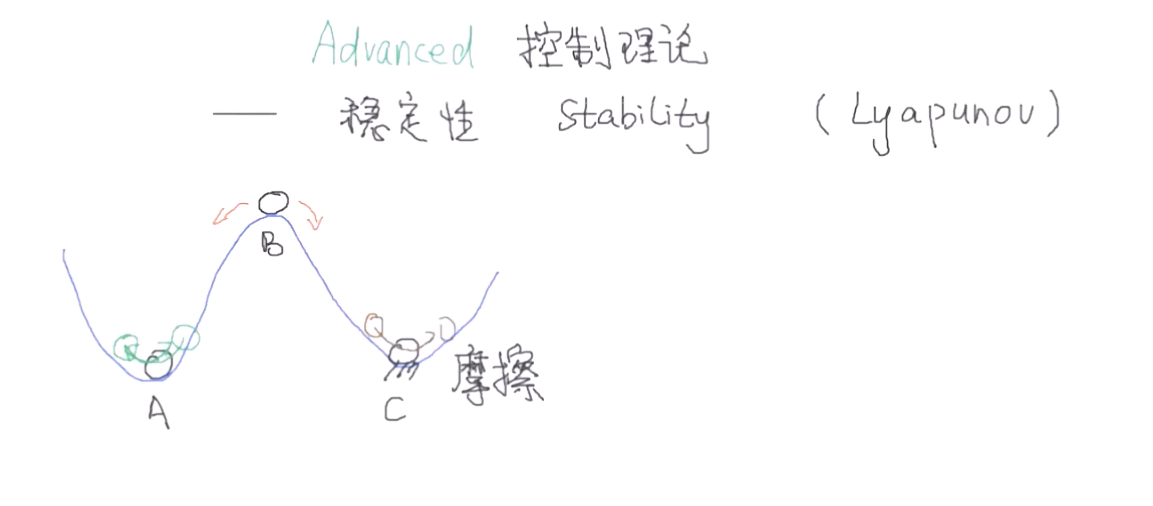 Advanced 控制理论
—— 稳定性 Stability (Lyapunov)
B
摩擦
A
C